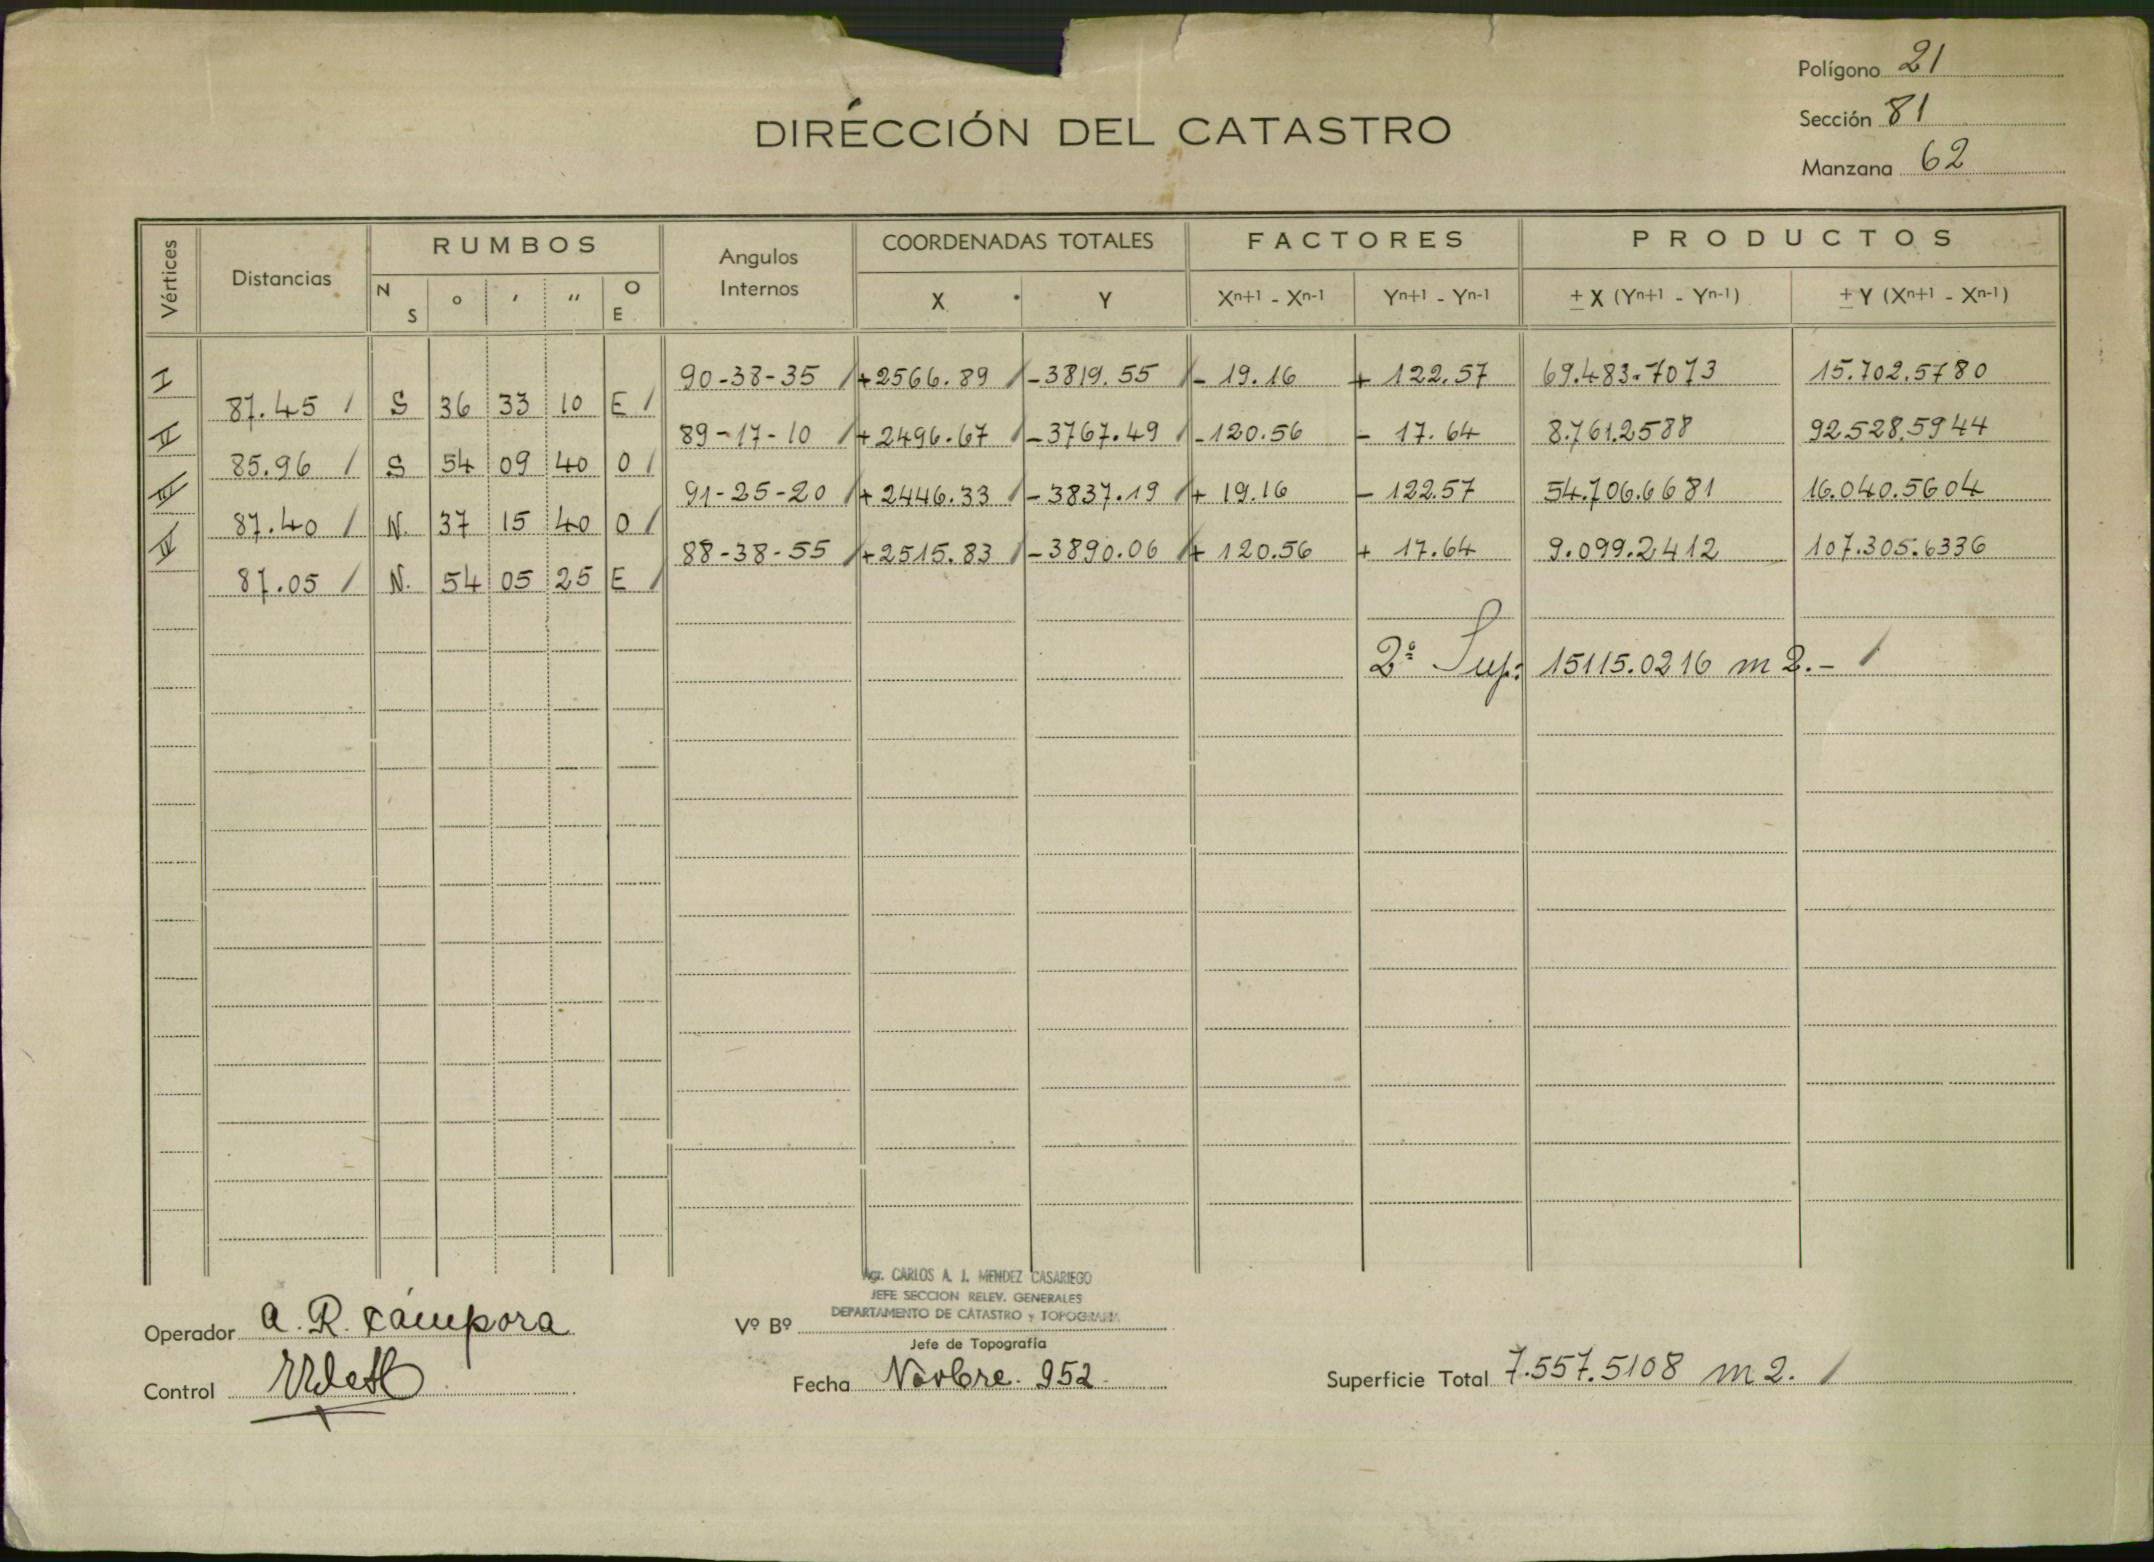 Polígono 21
DIRECCIÓN DEL CATASTRO
Sección 81
Manzana 62
Vértices Distancias RUMBOS Angulos Internos COORDENADAS TOTALES FACTORES PRODUCTOS
N S ° ' " O E X Y Xn+1 - Xn-1 Yn+1 - Yn-1 ± X (Yn+1 - Yn-1) ± Y (Xn+1 - Xn-1)
I 90-38-35 / +2566.89 / -3819.55 / - 19.16 + 122.57 69.483.7073 15.702.5780
87.45 / S 36 33 10 E /
II 89-17-10 / +2496.67 / -3767.49 / -120.56 - 17.64 8.761.2588 92.528.5944
85.96 / S 54 09 40 O /
III 91-25-20 / +2446.33 / -3837.19 / + 19.16 - 122.57 54.706.6681 16.040.5604
87.40 / N. 37 15 40 O /
IV 88-38-55 / +2515.83 / -3890.06 / + 120.56 + 17.64 9.099.2412 107.305.6336
87.05 / N. 54 05 25 E /
2ª Sup: 15115.0216 m2.- /
Agr. CARLOS A. J. MENDEZ CASARIEGO
JEFE SECCION RELEV. GENERALES
DEPARTAMENTO DE CATASTRO y TOPOGRAFIA
Operador A. R. Cámpora Vº Bº
Jefe de Topografía
Control Fecha Novbre. 952. Superficie Total 7.557.5108 m2. /